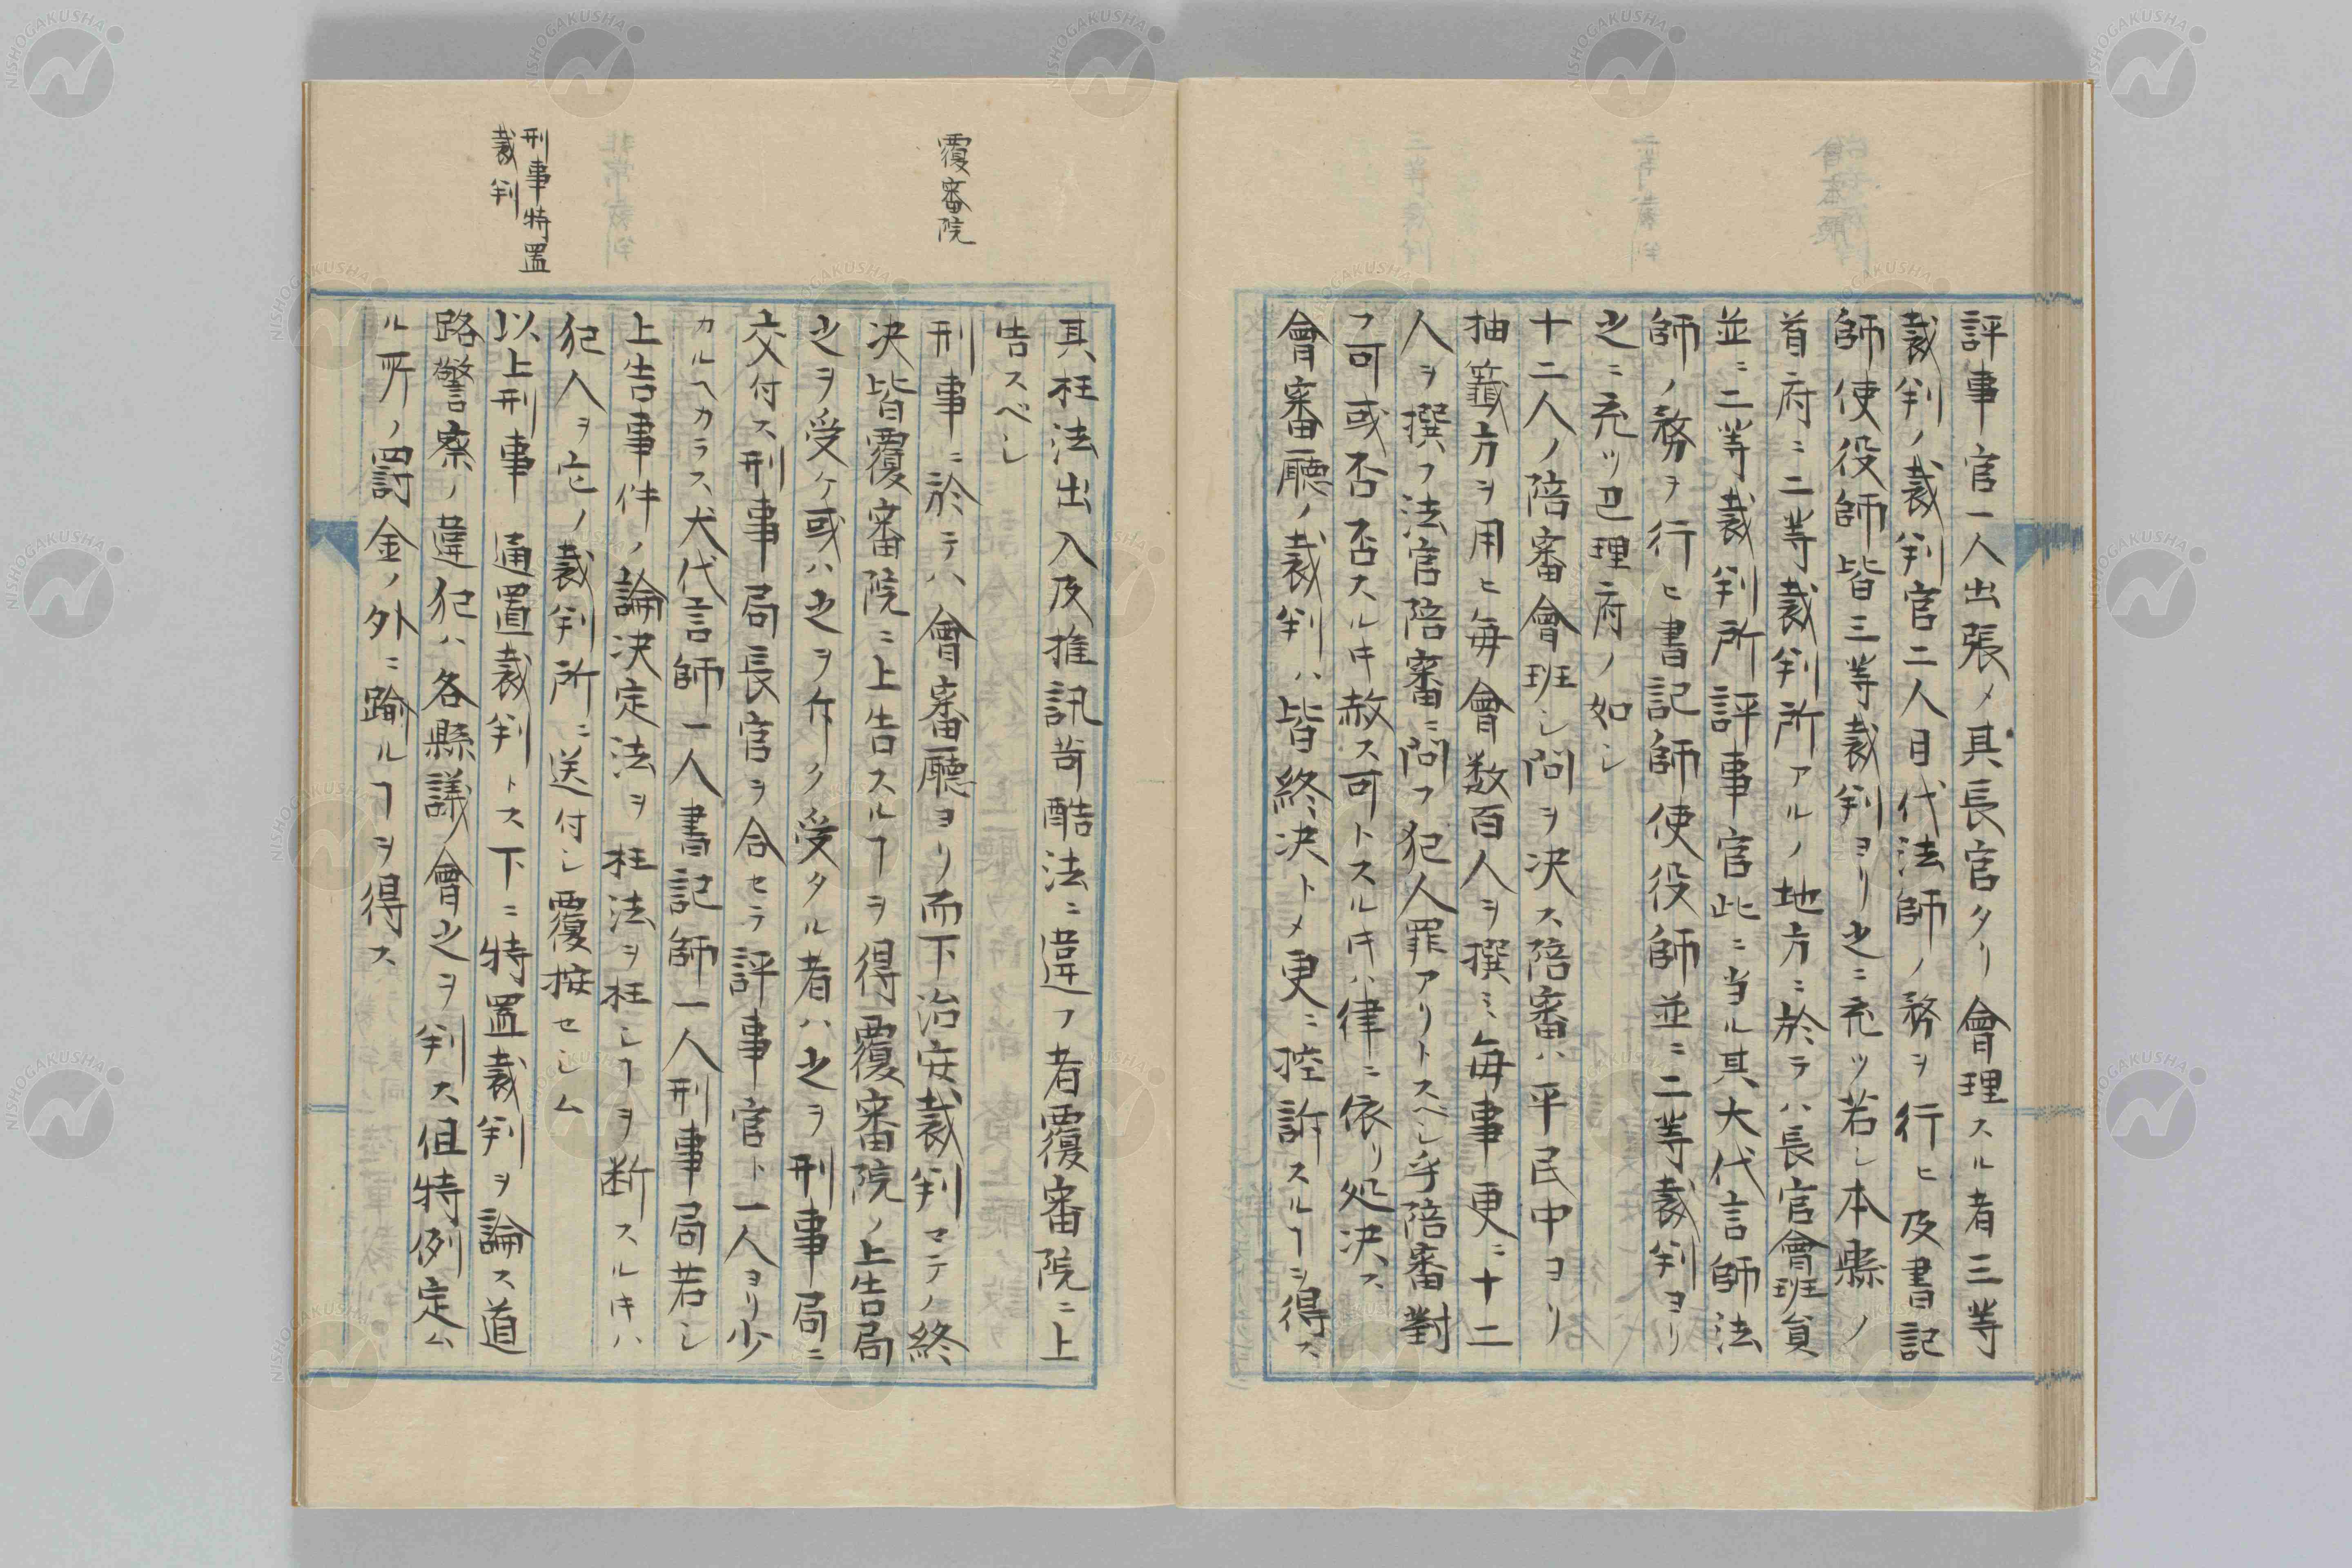 評事官一人出張〆其長官タリ會理スル者三等
裁判ノ裁判官二人目代法師ノ務ヲ行ヒ及書記
師使役師皆三等裁判ヨリ之ニ充ツ若シ本縣ノ
首府ニ二等裁判所アルノ地方ニ於テハ長官會班貟
並ニ二等裁判所評事官此ニ当ル其大代言師法
師ノ務ヲ行ヒ書記師使役師並ニ二等裁判ヨリ
之ニ充ツ巴理府ノ如シ
十二人ノ陪審會班シ問ヲ决ス陪審ハ平民中ヨリ
抽籤方ヲ用ヒ毎會数百人ヲ撰ミ毎事更ニ十二
人ヲ撰フ法官陪審ニ問フ犯人罪アリトスベシ乎陪審對
フ可或否否スルキ赦ス可トスルキハ律ニ依リ処决ス
會審廳ノ裁判ハ皆終决ト〆更ニ控訴スルヿヲ得ス
覆審院
刑事特置
裁判
其枉法出入及推訊苛酷法ニ違フ者覆審院ニ上
告スベシ
刑事ニ於テハ會審廳ヨリ而下治安裁判マテノ終
决皆覆審院ニ上告スルヿヲ得覆審院ノ上告局
之ヲ受ケ或ハ之ヲ斥ク受タル者ハ之ヲ刑事局ニ
交付ス刑事局長官ヲ合セテ評事官ト一人ヨリ少
カルヘカラス大代言師一人書記師一人刑事局若シ
上告事件ノ論决定法ヲ枉法ヲ枉シヿヲ断スルキハ
犯人ヲ它ノ裁判所ニ送付シ覆按セシム
以上刑事通置裁判トス下ニ特置裁判ヲ論ス道
路警察ノ違犯ハ各縣議會之ヲ判ス但特例定ム
ル所ノ罰金ノ外ニ踰ルヿヲ得ス
NISHOGAKUSHA